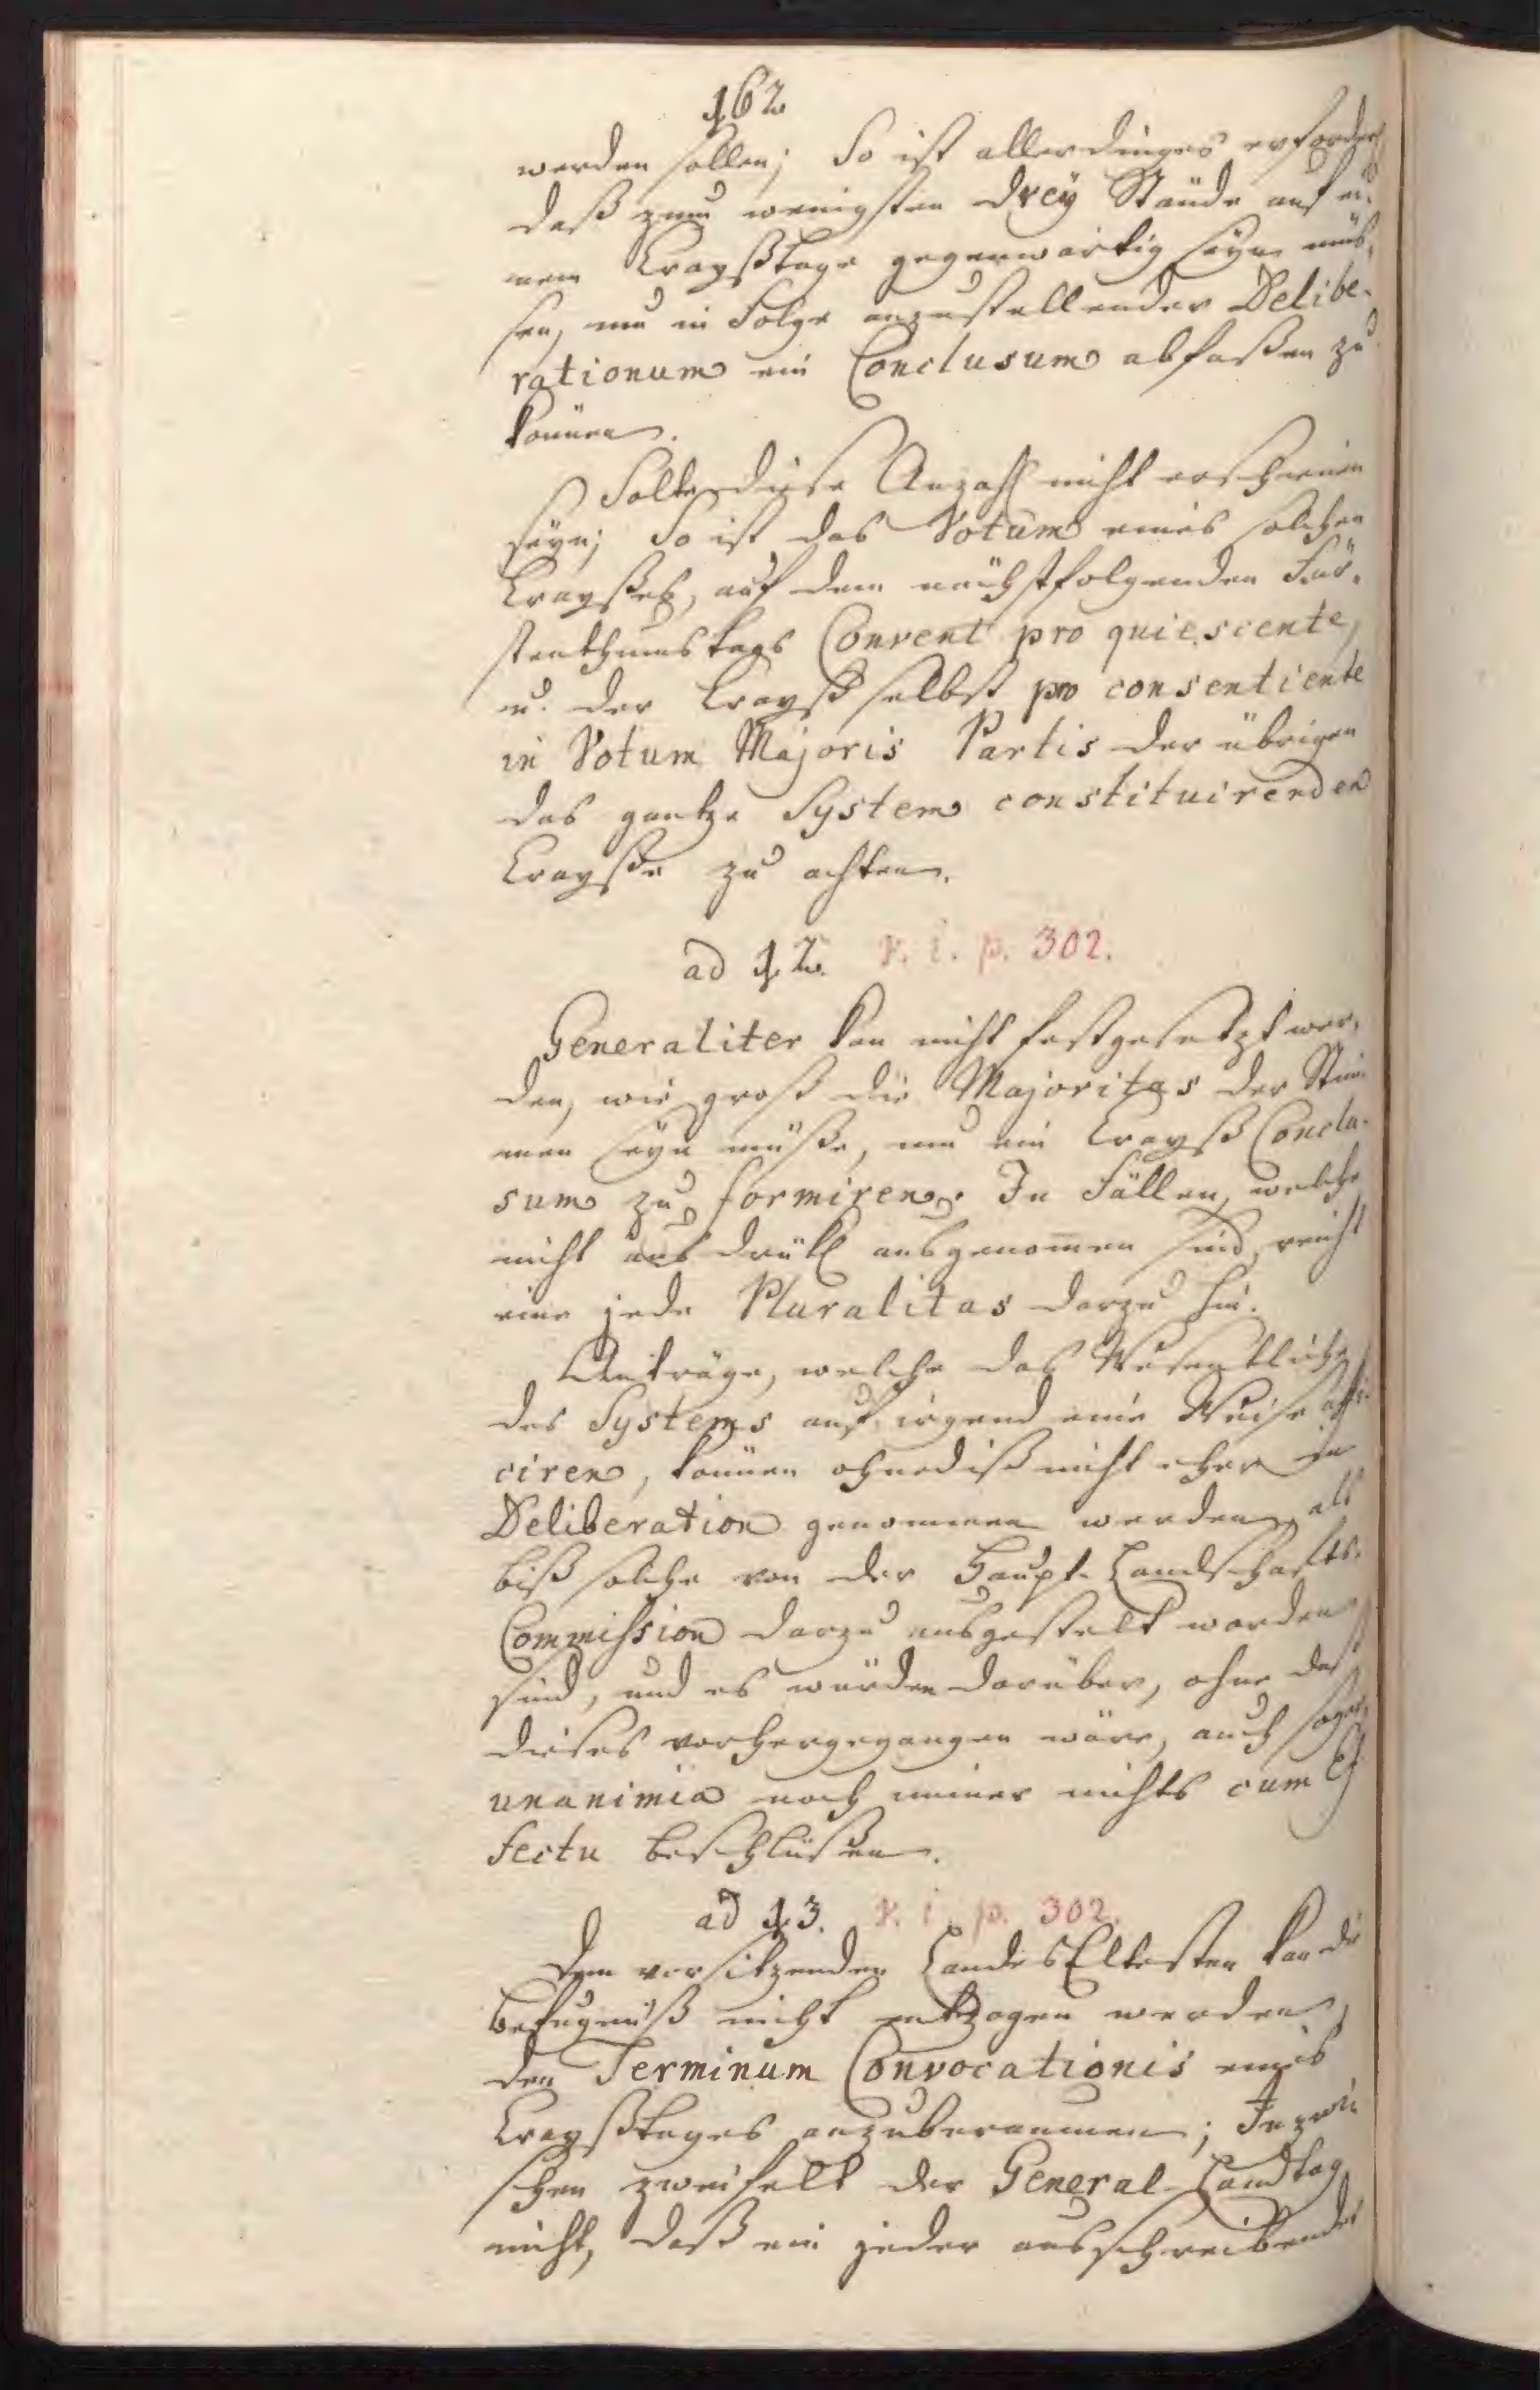 162
werden sollen; So ist allerdinges erforderl.
daß zum wenigsten drey Stände auf ei-
nem Crayßtage gegenwärtig seyn müs-
sen, um in Folge anzustellender Delibe-
rationum ein Conclusum abfaßen zu
können.
Solte diese Anzahl nicht erschienen
seyn; So ist das Votum eines solchen
Crayßes, auf dem nächstfolgenden Für-
stenthumstags Convent pro quiescente,
u. der Crayß selbst pro consentiente
in Votum Majoris Partis der übrigen
das gantze System constituirenden
Crayße zu achten.
ad 12. v. i. p. 302.
Generaliter kan nicht festgesetzt wer-
den, wie groß die Majoritas der Stim-
men seyn müße, um ein Crayß Conclu-
sum zu formiren. In Fällen, welche
nicht ausdrükl ausgenom̄en sind, reicht
eine jede Pluralitas darzu hin.
Anträge, welche das Wesentliche
des Systems auf irgend eine Weise affi-
ciren, können ohnediß nicht eher in
Deliberation genommen werden, als
biß solche von der Haupt-Landschafts-
Commission darzu ausgestelt worden
sind, und es würden darüber, ohne daß
dieses vorhergegangen wäre, auch sogar
unanimia noch immer nichts cum Ef-
fectu beschlüßen.
ad 13. v. i. p. 302.
Dem vorsitzenden LandesEltesten kan die
Befugniß nicht entzogen werden,
den Terminum Convocationis eines
Crayßtages anzuberaumen; Inzwi-
schen zweifelt der General-Landtag
nicht, daß ein jeder ausschreibender